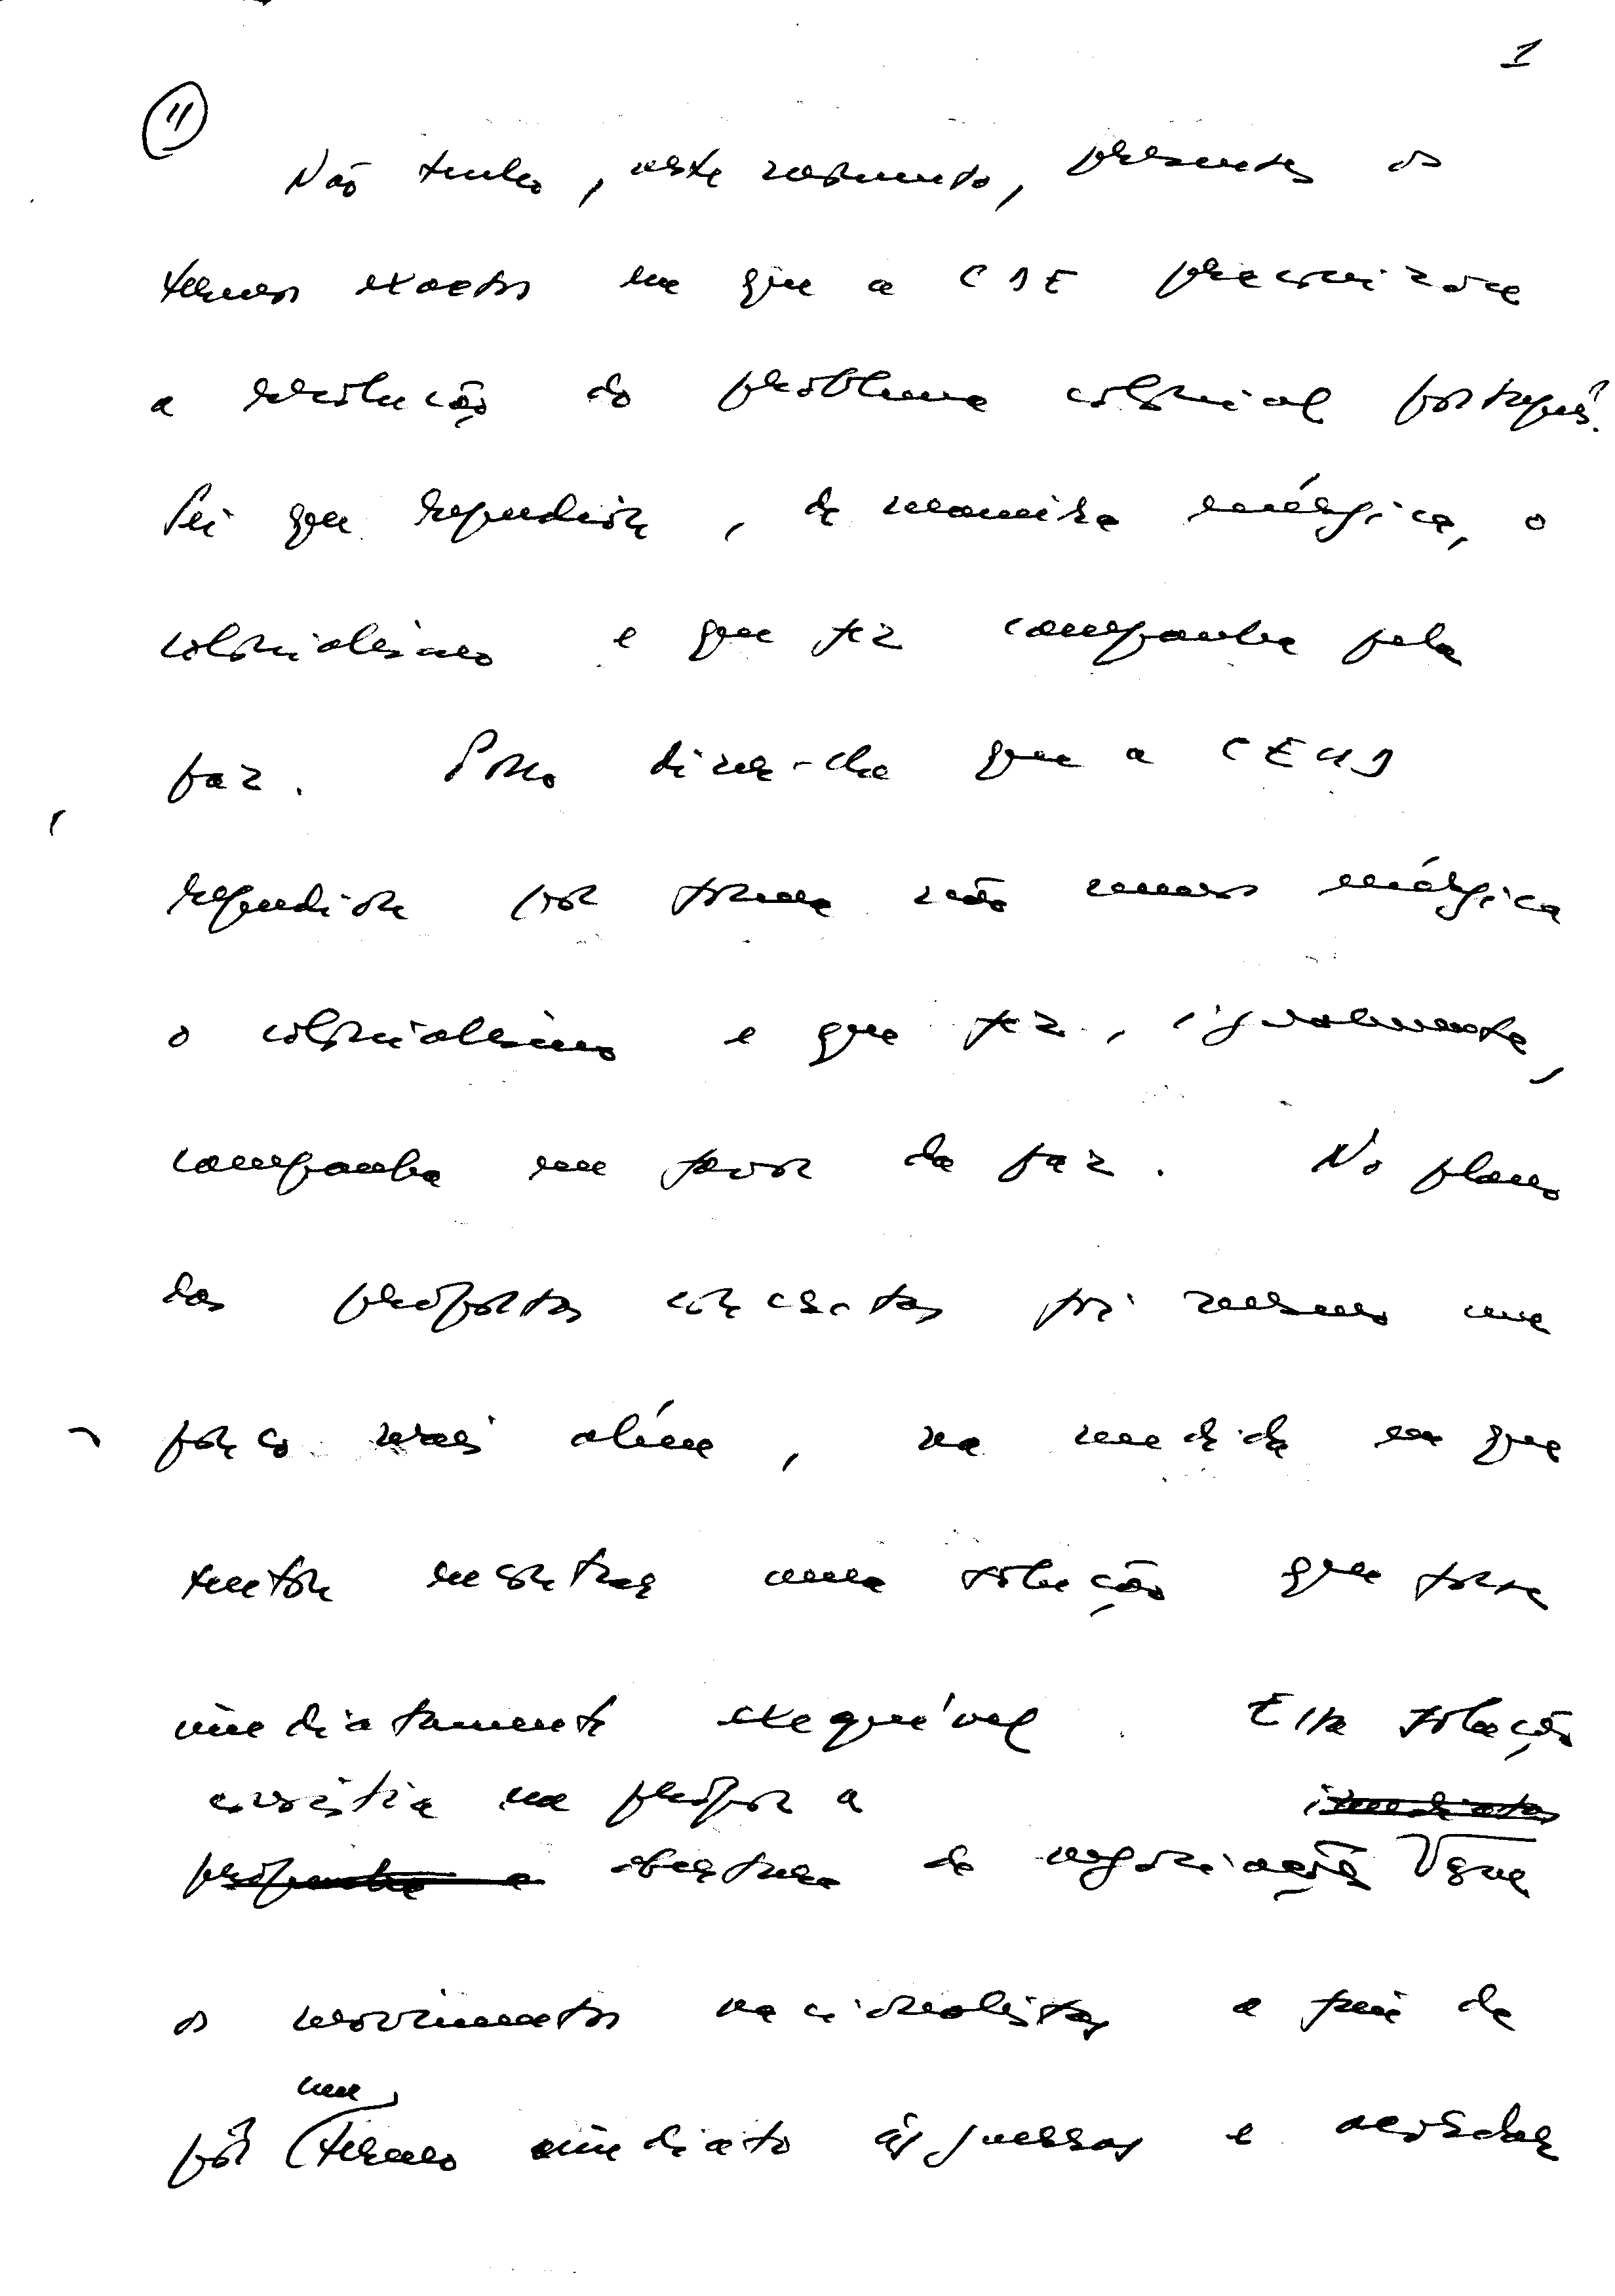 1
11
Não tenho, neste momento, presentes os
termos exactos em que a CDE preconizou
a resolução do problema colonial português.
Sei que repudiou, de maneira enérgica, o
colonialismo e que fez campanha pela
paz. Posso dizer-lhe que a CEUD
repudiou por forma não menos enérgica
o colonialismo e que fez, igualmente,
campanha em favor da paz. No plano
das propostas concretas foi mesmo um
pouco mais além, na medida em que
tentou encontrar uma solução que fosse
imediatamente exequível. Essa solução
consistia em propor a imediatas
propunha a abertura de negociações com
os movimentos nacionalistas a fim de
um
pôr termo imediato às guerras e acordar